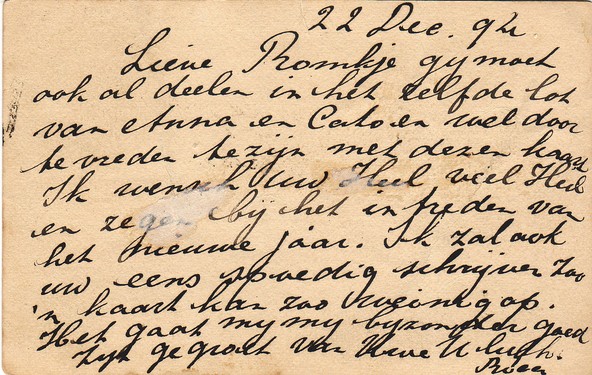 22 Dec. 94
Lieve Romkje gij moet
ook al deelen in het zelfde lot
van Anna en Cato en wel door
te vreden te zijn met dezen kaart
Ik wensch uw Heil viel Heil
en zegen bij het intreden van
het nieuwe jaar. Ik zal ook
uw eens spoedig schrijven zoo
'n kaart kan zoo weinig op.
Het gaat mij mij byzonder goed
Zijt gegroet van Uwe